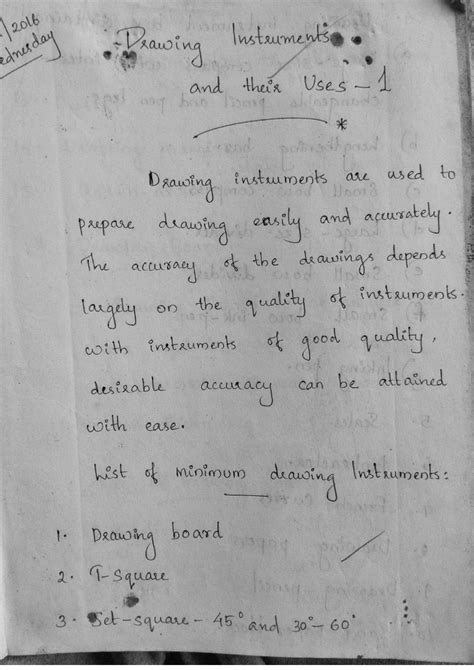 /2016
Wednesday
Drawing Instruments
and their Uses - 1
*
Drawing instruments are used to
prepare drawing easily and accurately.
The accuracy of the drawings depends
largely on the quality of instruments.
with instruments of good quality,
desirable accuracy can be attained
with ease.
List of minimum drawing Instruments:
1. Drawing board
2. T-Square
3. Set-square - 45° and 30° - 60°